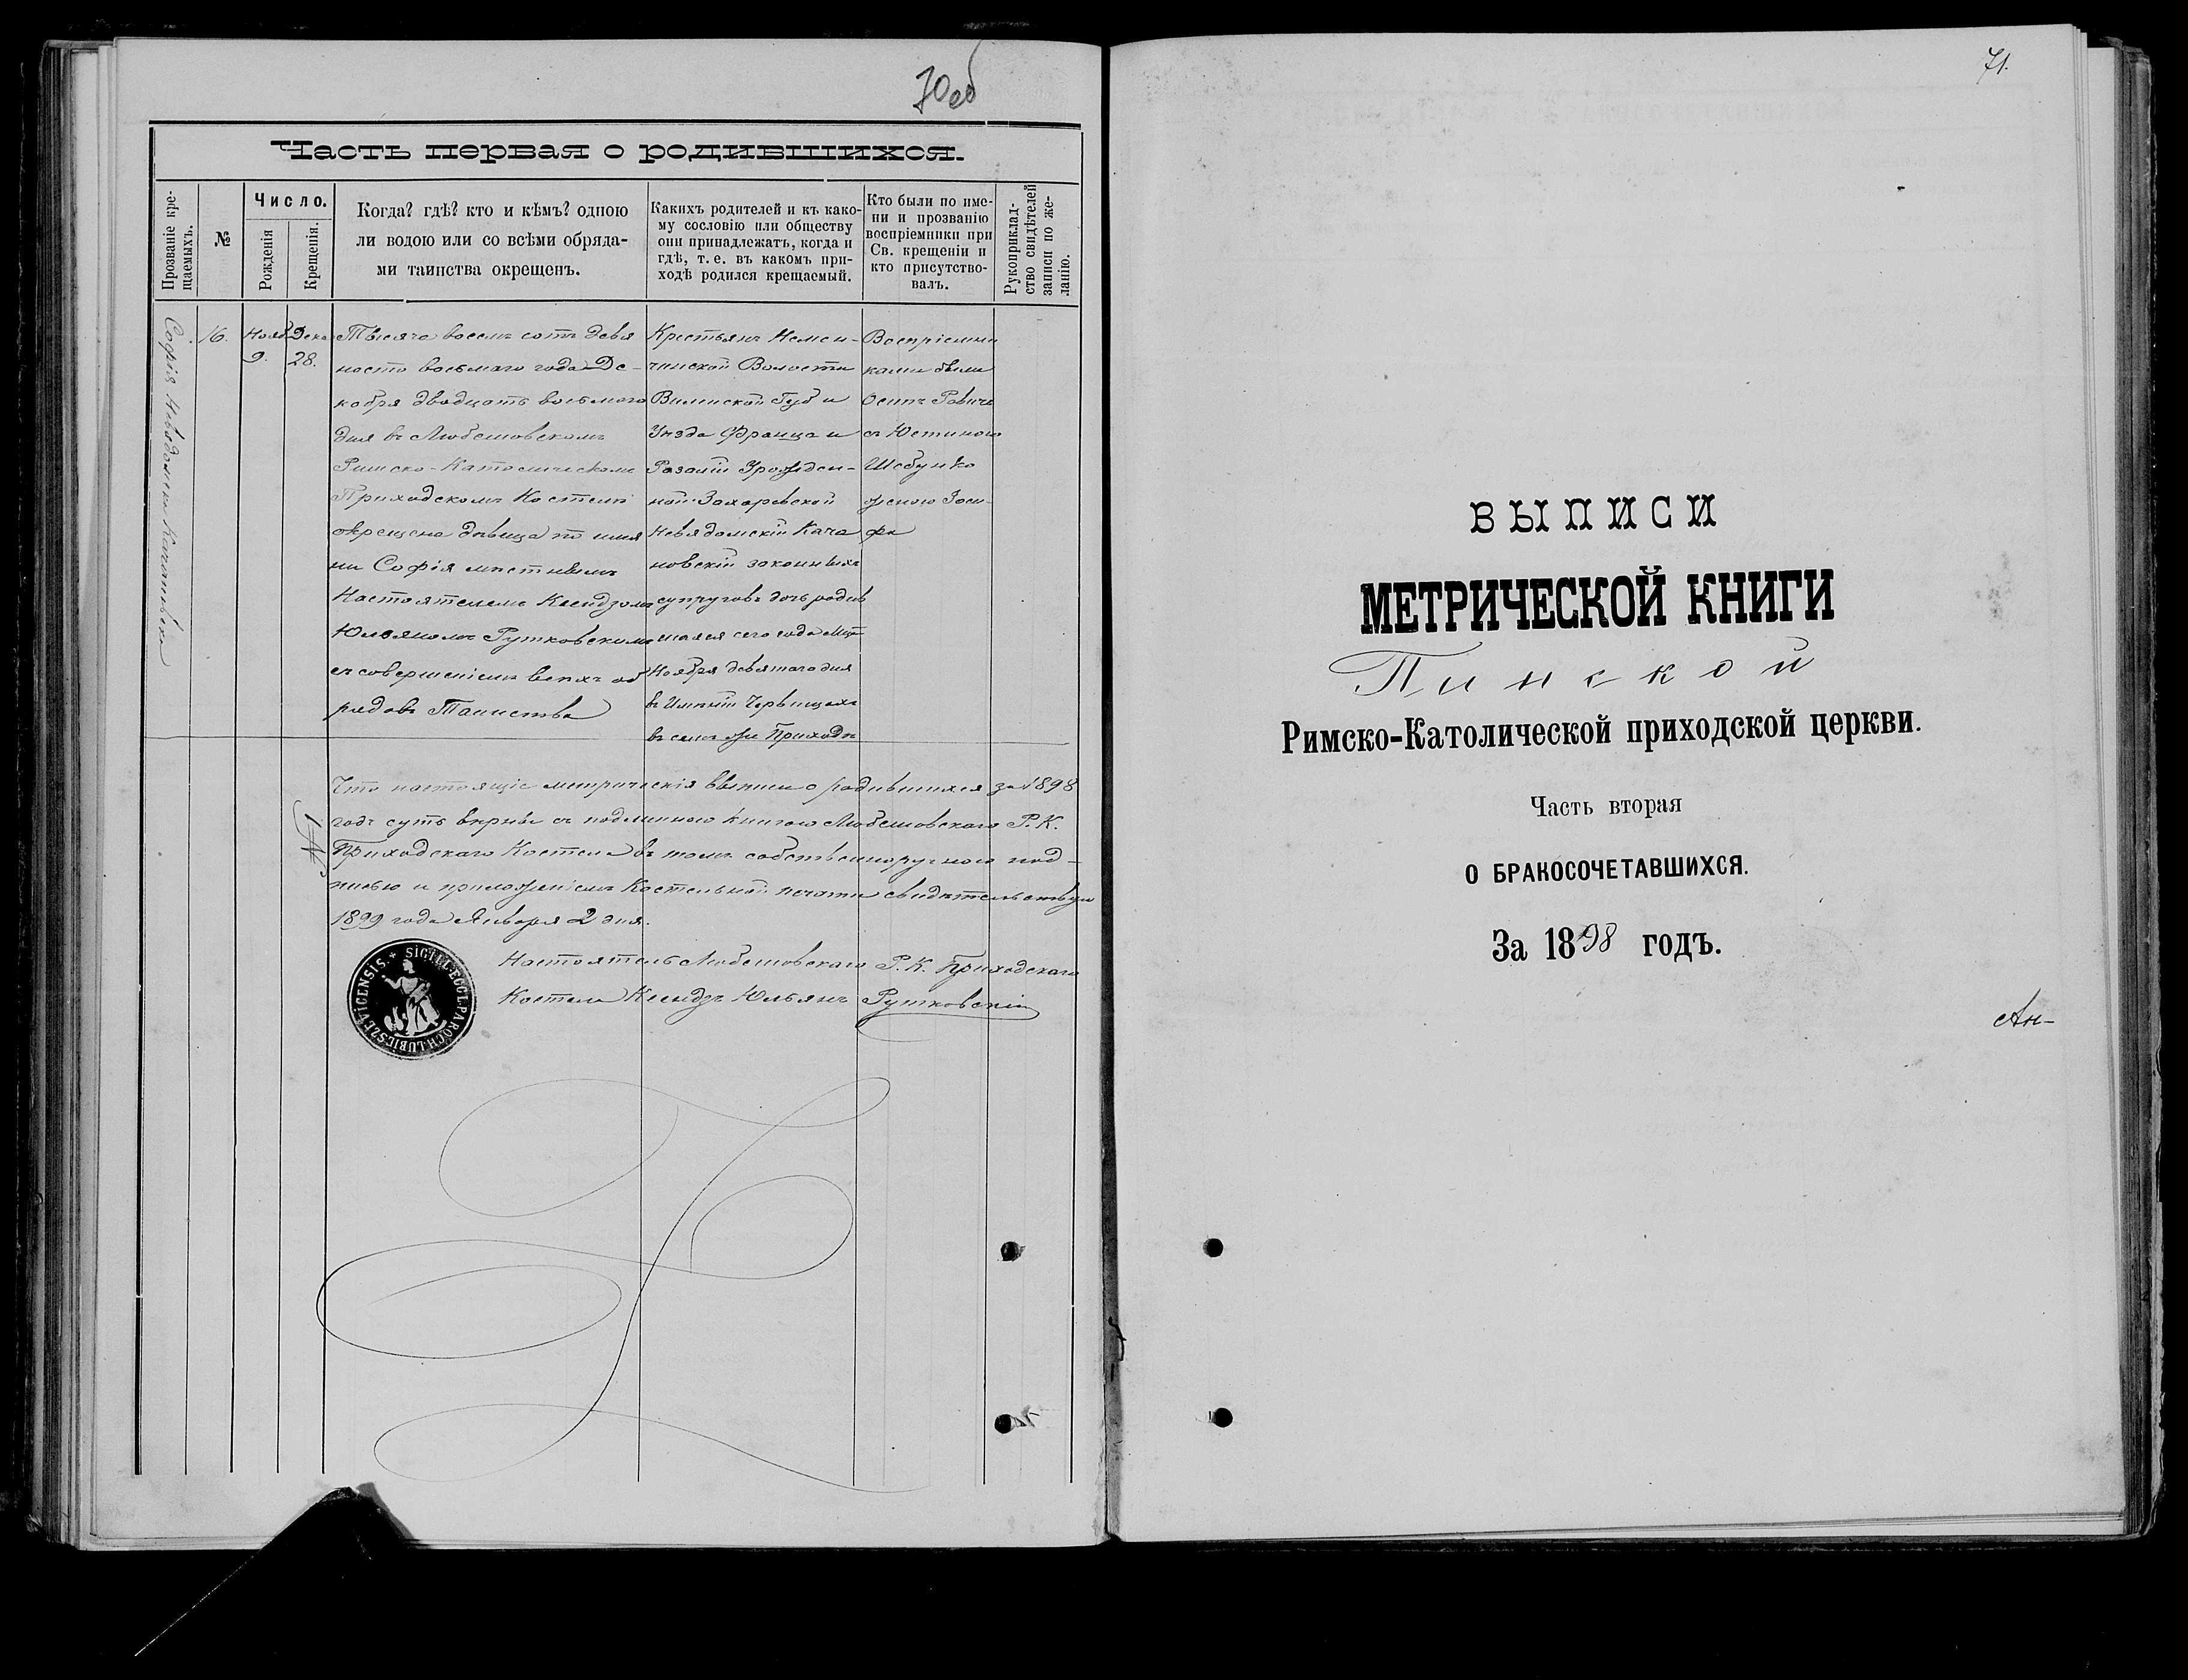 70об
Часть первая о родившихся.
Прозваніе кре-
щаемыхъ.
№
Число.
Рожденія
Крещенія.
Когда? гдѣ? кто и кѣмъ? одною
ли водою или со всѣми обряда-
ми таинства окрещенъ.
Какихъ родителей и къ како-
му сословію или обществу
они принадлежатъ, когда и
гдѣ, т. е. въ какомъ при-
ходѣ родился крещаемый.
Кто были по име-
ни и прозванію
воспріемники при
Св. крещеніи и
кто присутство-
валъ.
Рукоприклад-
ство свидѣтелей
записи по же-
ланію.
Софія
16.
Нояб.
9.
Дека
28.
Тысяча восемь сотъ девя
носто восьмаго года Де-
кабря двадцать восьмаго
дня въ Любешовскомъ
Римско-Католическомъ
Приходскомъ Костелѣ
окрещена дѣвица по имя
ни Софія мѣстнымъ
Настоятелемъ Ксендзомъ
Юльяномъ Рутковскимъ
съ совершеніемъ всѣхъ об
рядовъ Таинства
Крестьянъ Немен-
чинской Волости
Виленской Губ и
Уѣзда Франца и
Розаліи Урожден-
ной Захаревской
Невядомскій Кача
новскій законныхъ
супруговъ дочь родив
шаяся сего года
Ноября девятаго дня
въ Имѣніи Червищахъ
въ семъ же Приходѣ
Воспріемни
ками были
Осипъ
съ Юстиною
женою Іоси
фа
Что настоящіе метрическія выписи о родившихся за 1898
годъ суть вѣрны съ подлинною книгою Любешовскаго Р. К.
Приходскаго Костела въ томъ собственноручною под-
писью и приложеніемъ Костельной печати свидѣтельствую
1899 года Января 2 дня.
Настоятель Любешовскаго Р. К. Приходскаго
Костела Ксендзъ Юльянъ Рутковскій
SIGILL. ECCL. PAROCH. LUBIESZEVICENSIS. +
71.
ВЫПИСИ
МЕТРИЧЕСКОЙ КНИГИ
Пинской
Римско-Католической приходской церкви.
Часть вторая
О БРАКОСОЧЕТАВШИХСЯ.
За 1898 годъ.
Ан-